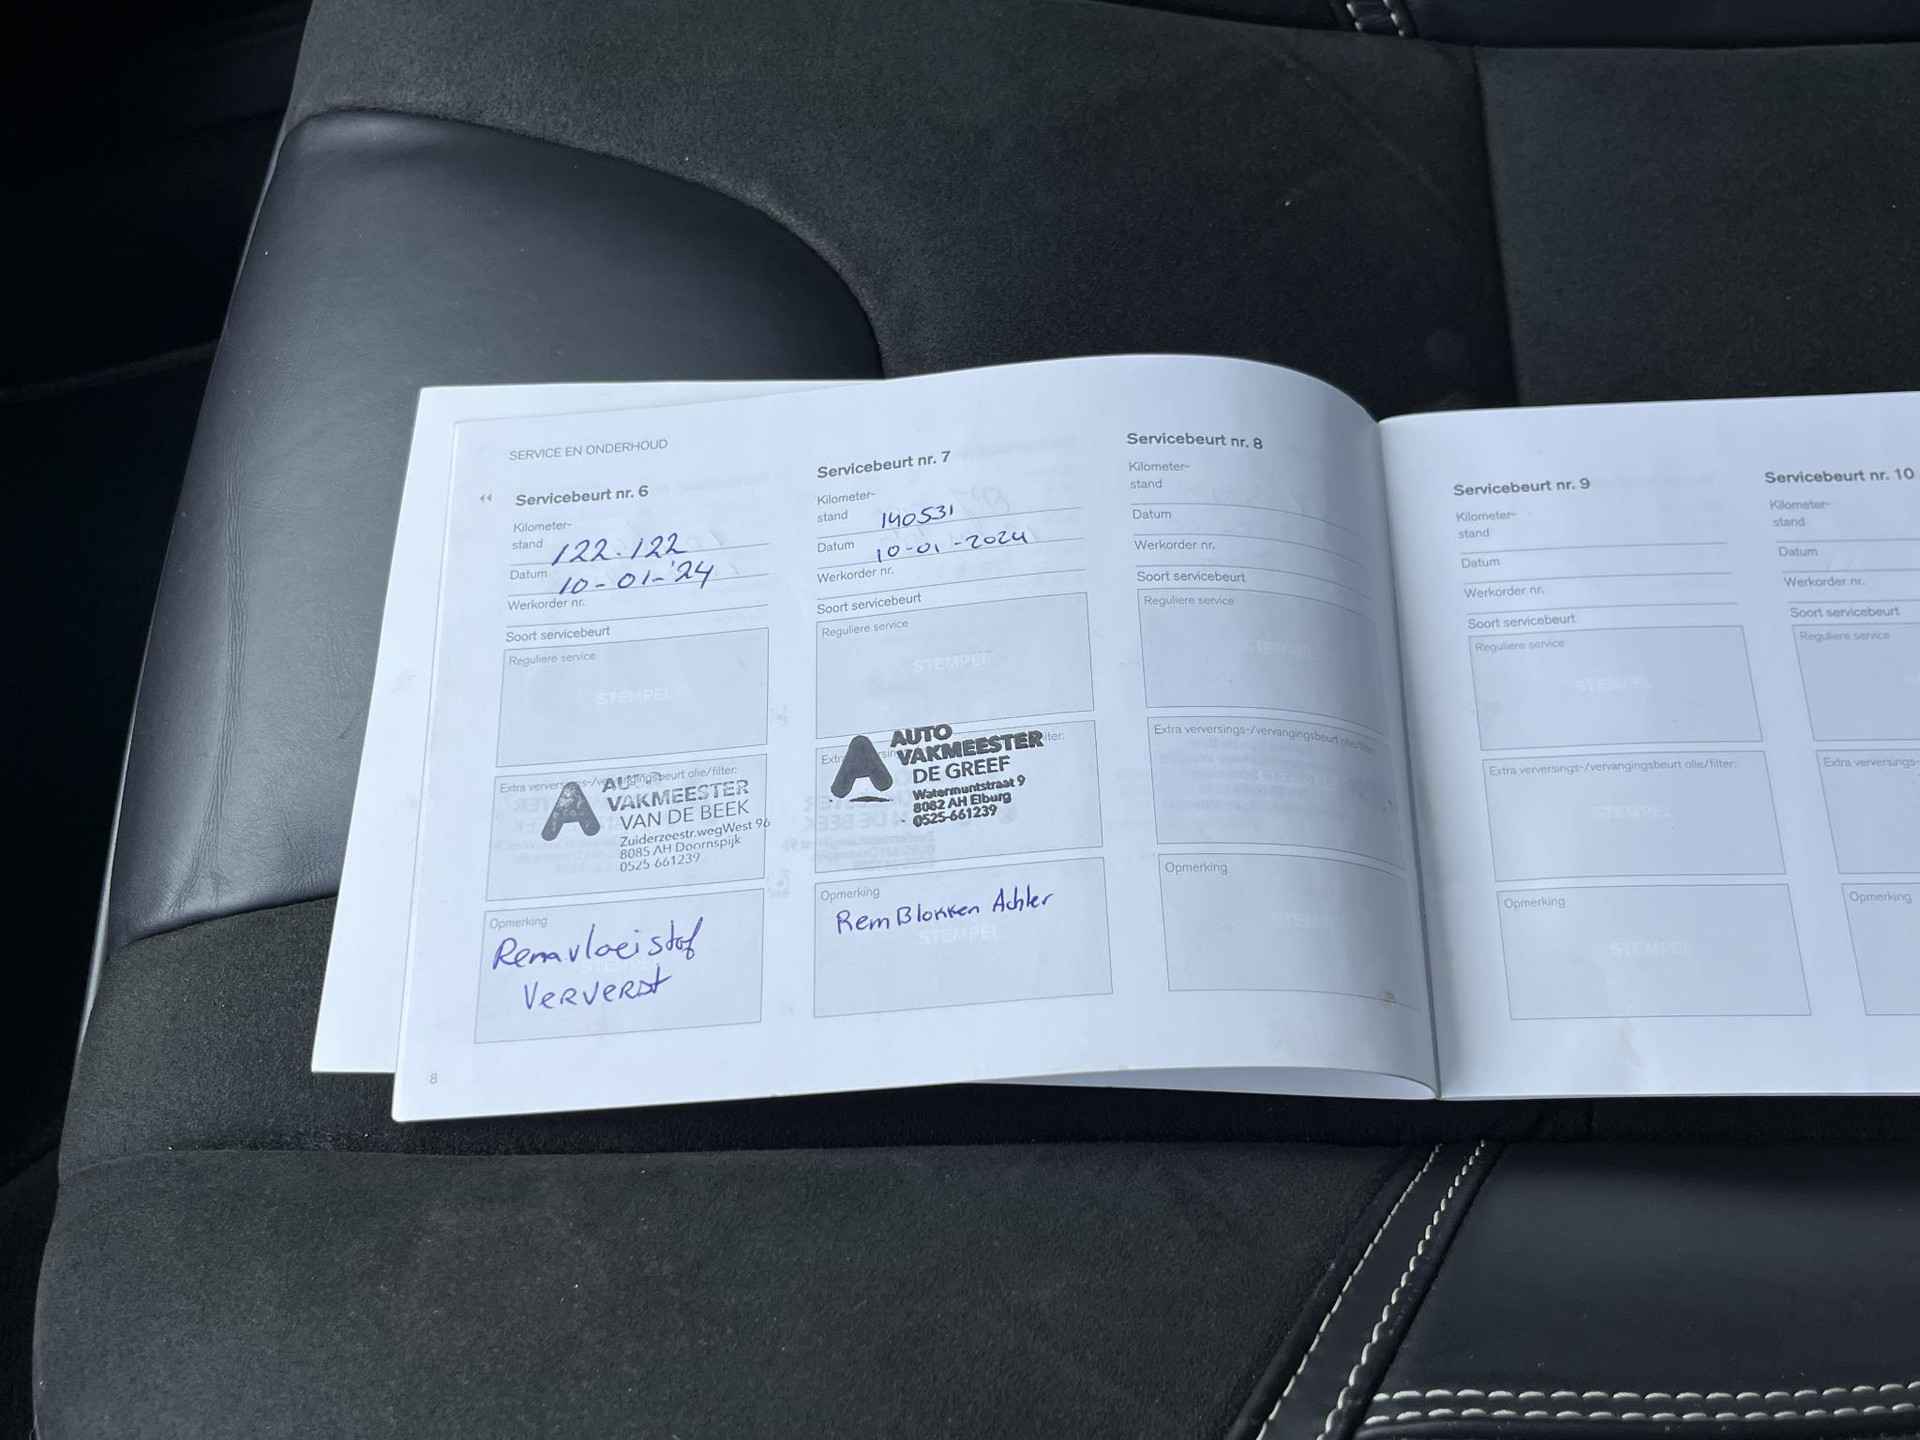 SERVICE EN ONDERHOUD
Servicebeurt nr. 6
Kilometer-
stand 122.122
Datum 10-01-'24
Werkorder nr.
Soort servicebeurt
Reguliere service
STEMPEL
Extra verversings-/vervangingsbeurt olie/filter:
AUTO
VAKMEESTER
VAN DE BEEK
Zuiderzeestr.wegWest 96
8085 AH Doornspijk
0525 661239
Opmerking
Remvloeistof
Ververst
8
Servicebeurt nr. 7
Kilometer-
stand 140531
Datum 10-01-2024
Werkorder nr.
Soort servicebeurt
Reguliere service
STEMPEL
AUTO
VAKMEESTER
DE GREEF
Watermuntstraat 9
8082 AH Elburg
0525-661239
Opmerking
RemBlokken Achter
STEMPEL
Servicebeurt nr. 8
Kilometer-
stand
Datum
Werkorder nr.
Soort servicebeurt
Reguliere service
STEMPEL
Extra verversings-/vervangingsbeurt olie/filter:
Opmerking
STEMPEL
Servicebeurt nr. 9
Kilometer-
stand
Datum
Werkorder nr.
Soort servicebeurt
Reguliere service
STEMPEL
Extra verversings-/vervangingsbeurt olie/filter:
STEMPEL
Opmerking
STEMPEL
Servicebeurt nr. 10
Kilometer-
stand
Datum
Werkorder nr.
Soort servicebeurt
Reguliere service
Extra verversings-
Opmerking